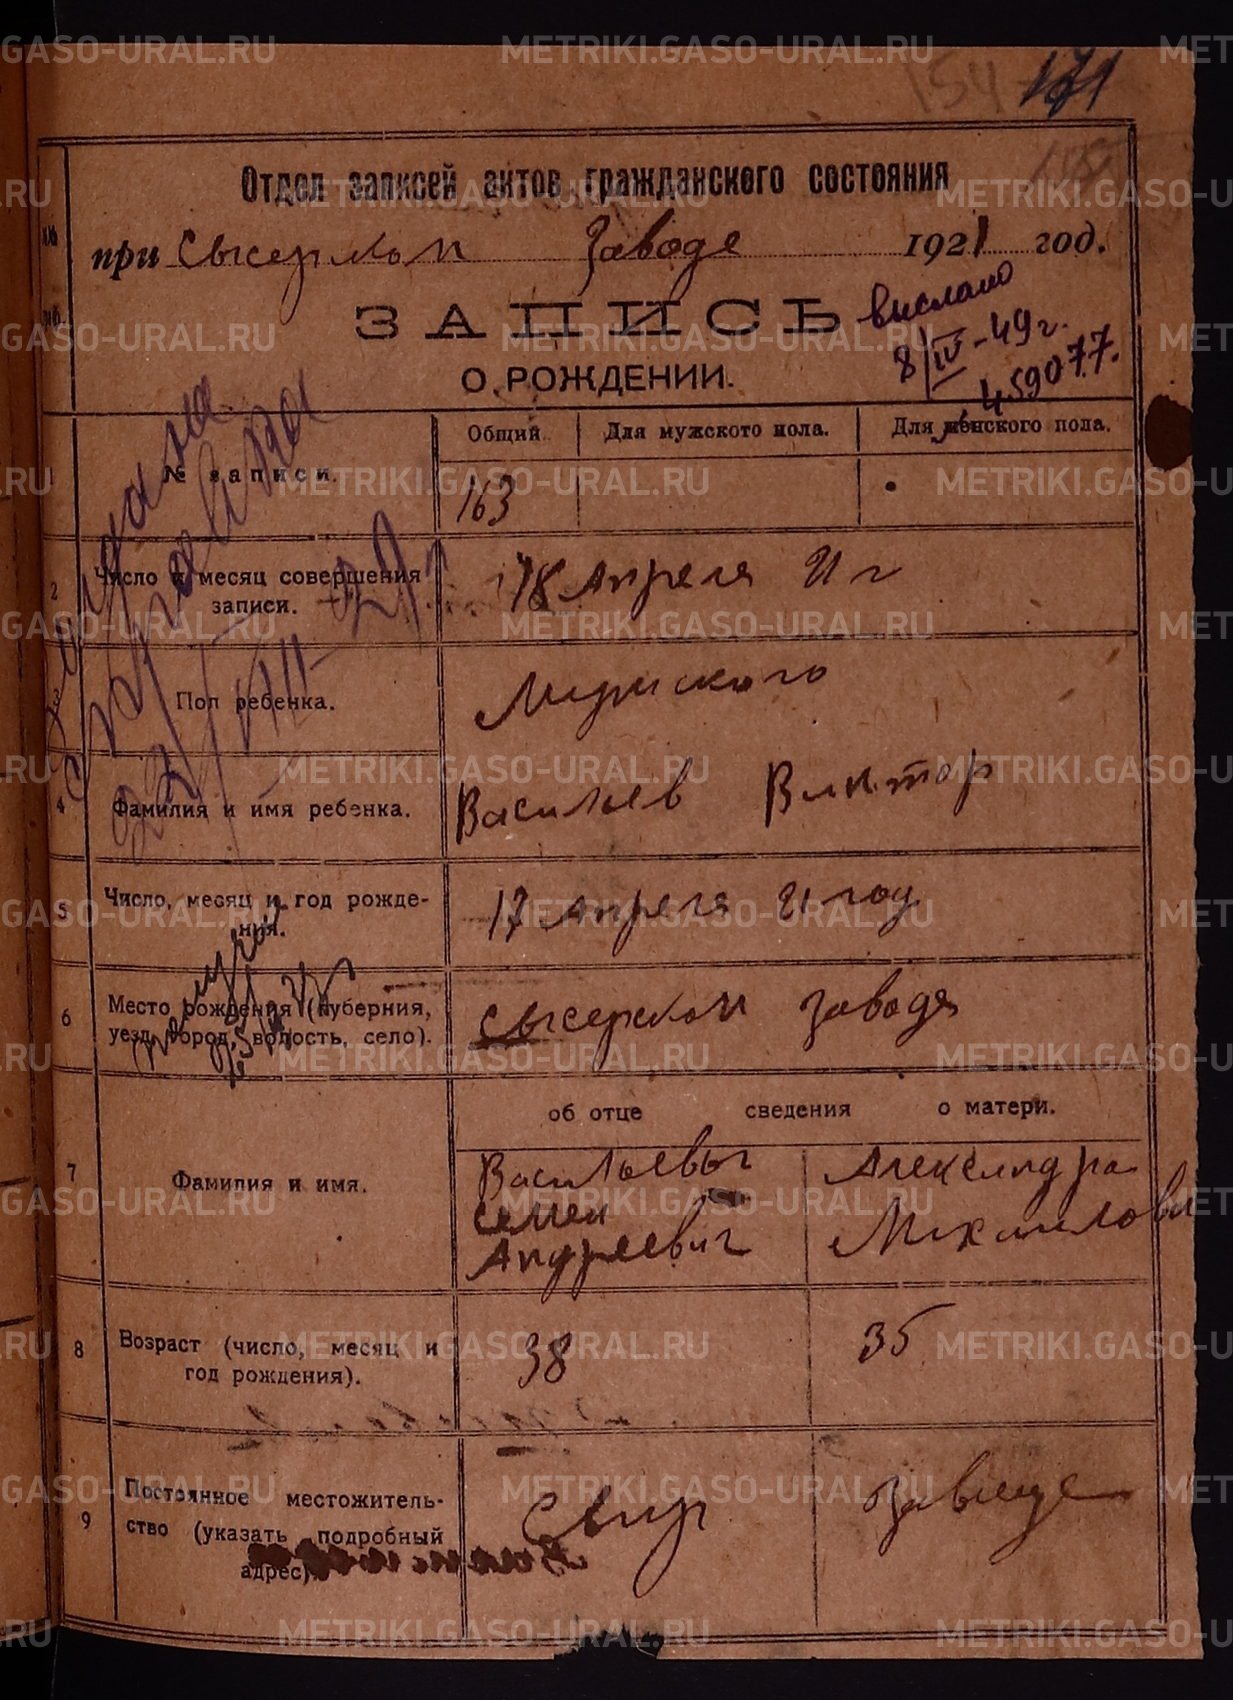 METRIKI.GASO-URAL.RU
171
154
Отдел записей актов гражданского состояния
при Сысерском Заводе 1921 год.
ЗАПИСЬ
О РОЖДЕНИИ.
выслано
8/IV-49 г.
459077.
№ записи.
Общий
Для мужского пола.
Для женского пола.
163
2
Число и месяц совершения
записи.
18 Апреля 21 г
3
Пол ребенка.
Мужского
4
Фамилия и имя ребенка.
Васильев Виктор
5
Число, месяц и год рожде-
ния.
17 Апреля 21 год
6
Место рождения (губерния,
уезд, город, волость, село).
Сысерском заводе
об отце сведения о матери.
7
Фамилия и имя.
Васильевы
Семен
Андреевич
Александра
Михайлова
8
Возраст (число, месяц и
год рождения).
38
35
9
Постоянное местожитель-
ство (указать подробный
адрес)
Сыср
заводе